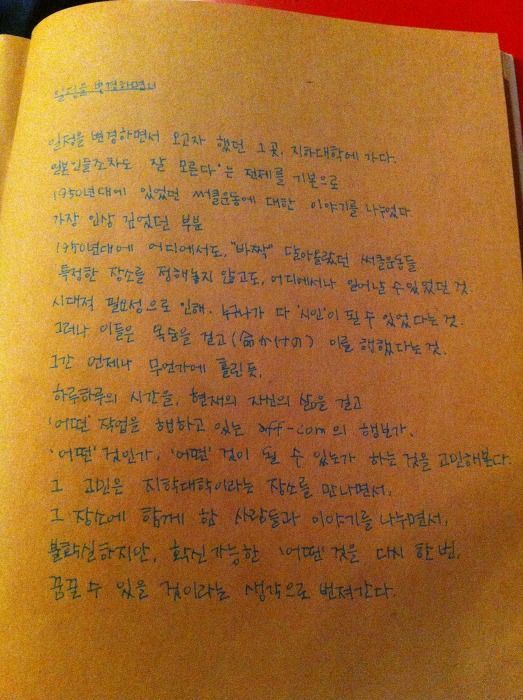 일정을 변경하면서
일정을 변경하면서 오고자 했던 그곳, 지하대학에 가다.
일본인들조차도 잘 모른다'는 전제를 기본으로
1950년대에 있었던 써클운동에 대한 이야기를 나누었다
가장 인상 깊었던 부분
1950년대에 어디에서도, "바짝" 달아올랐던 써클운동들
특정한 장소를 정해놓지 않고도, 어디에서나 일어날 수 있었던 것.
시대적 필요성으로 인해, 누구나가 다 '시인'이 될 수 있었다는 것.
그러나 이들은 목숨을 걸고(命かけの) 이를 행했다는 것.
그간 언제나 무언가에 홀린듯,
하루하루의 시간을, 현재의 자신의 삶을 걸고
'어떤' 작업을 행하고 있는 off-com의 행보가,
'어떤' 것인가, '어떤' 것이 될 수 있는가 하는 것을 고민해본다.
그 고민은 지하대학이라는 장소를 만나면서,
그 장소에 함께 한 사람들과 이야기를 나누면서,
불확실하지만, 확신가능한 '어떤' 것을 다시 한번,
꿈꿀 수 있을 것이라는 생각으로 번져간다.